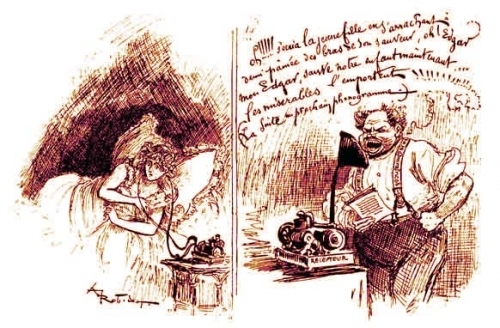 Oh!!!!! s'écria la jeune fille en s'arrachant
demi-pâmée des bras de son sauveur, oh! Edgar
mon Edgar, sauve notre enfant maintenant
les misérables l'emportent
(La suite au prochain phonogramme.)
RECEPTEUR
A. Robida